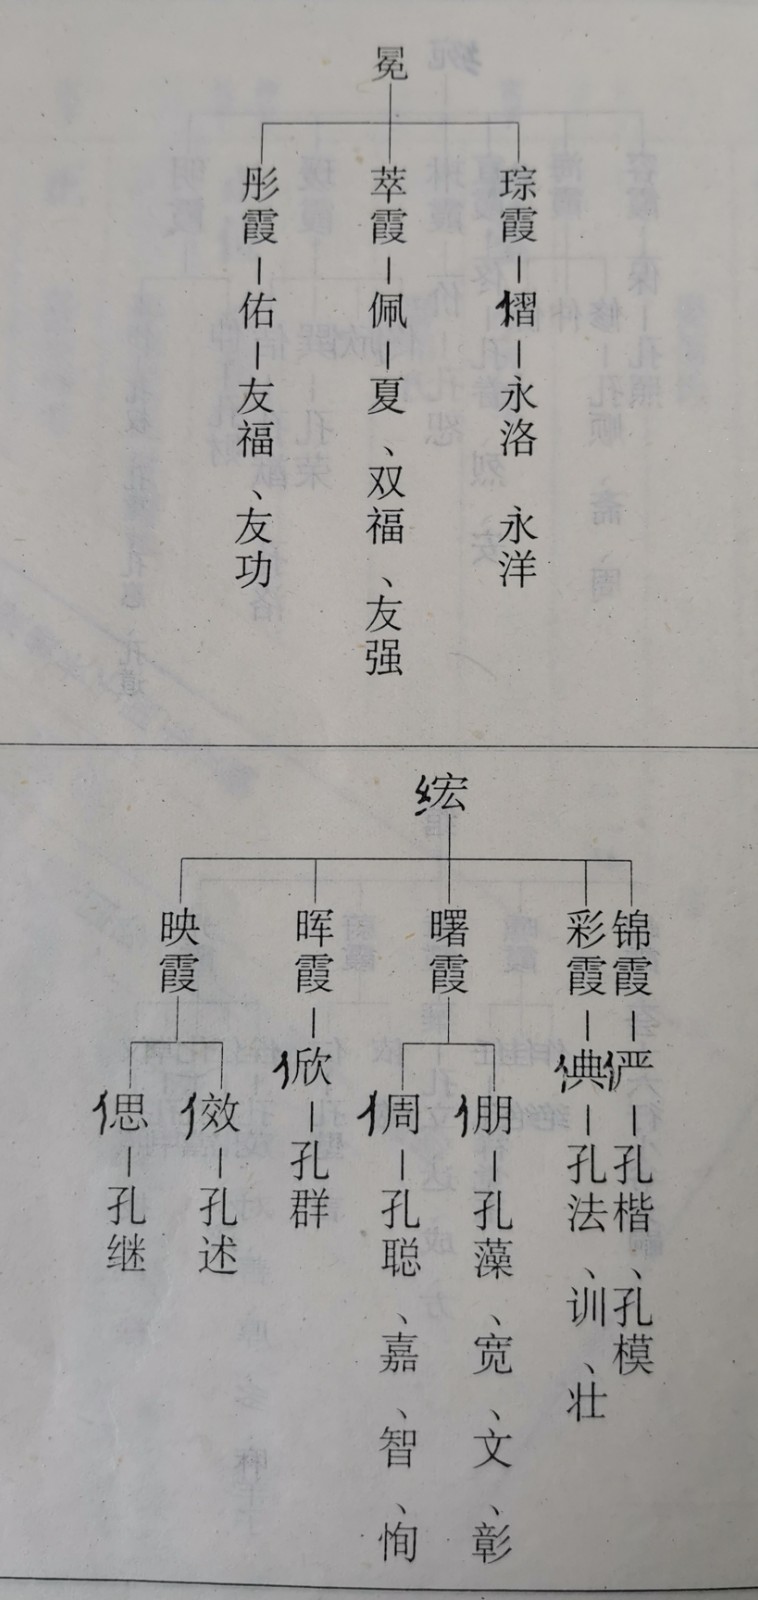 冕
琮霞—熠—永洛、永洋
萃霞—佩—夏、双福、友强
彤霞—佑—友福、友功
纮
锦霞—俨—孔楷、孔模
彩霞—倎—孔法、训、壮
曙霞
倗—孔藻、宽、文、彰
㑇—孔聪、嘉、智、恂
晖霞—孔群
映霞
傚—孔述
偲—孔继